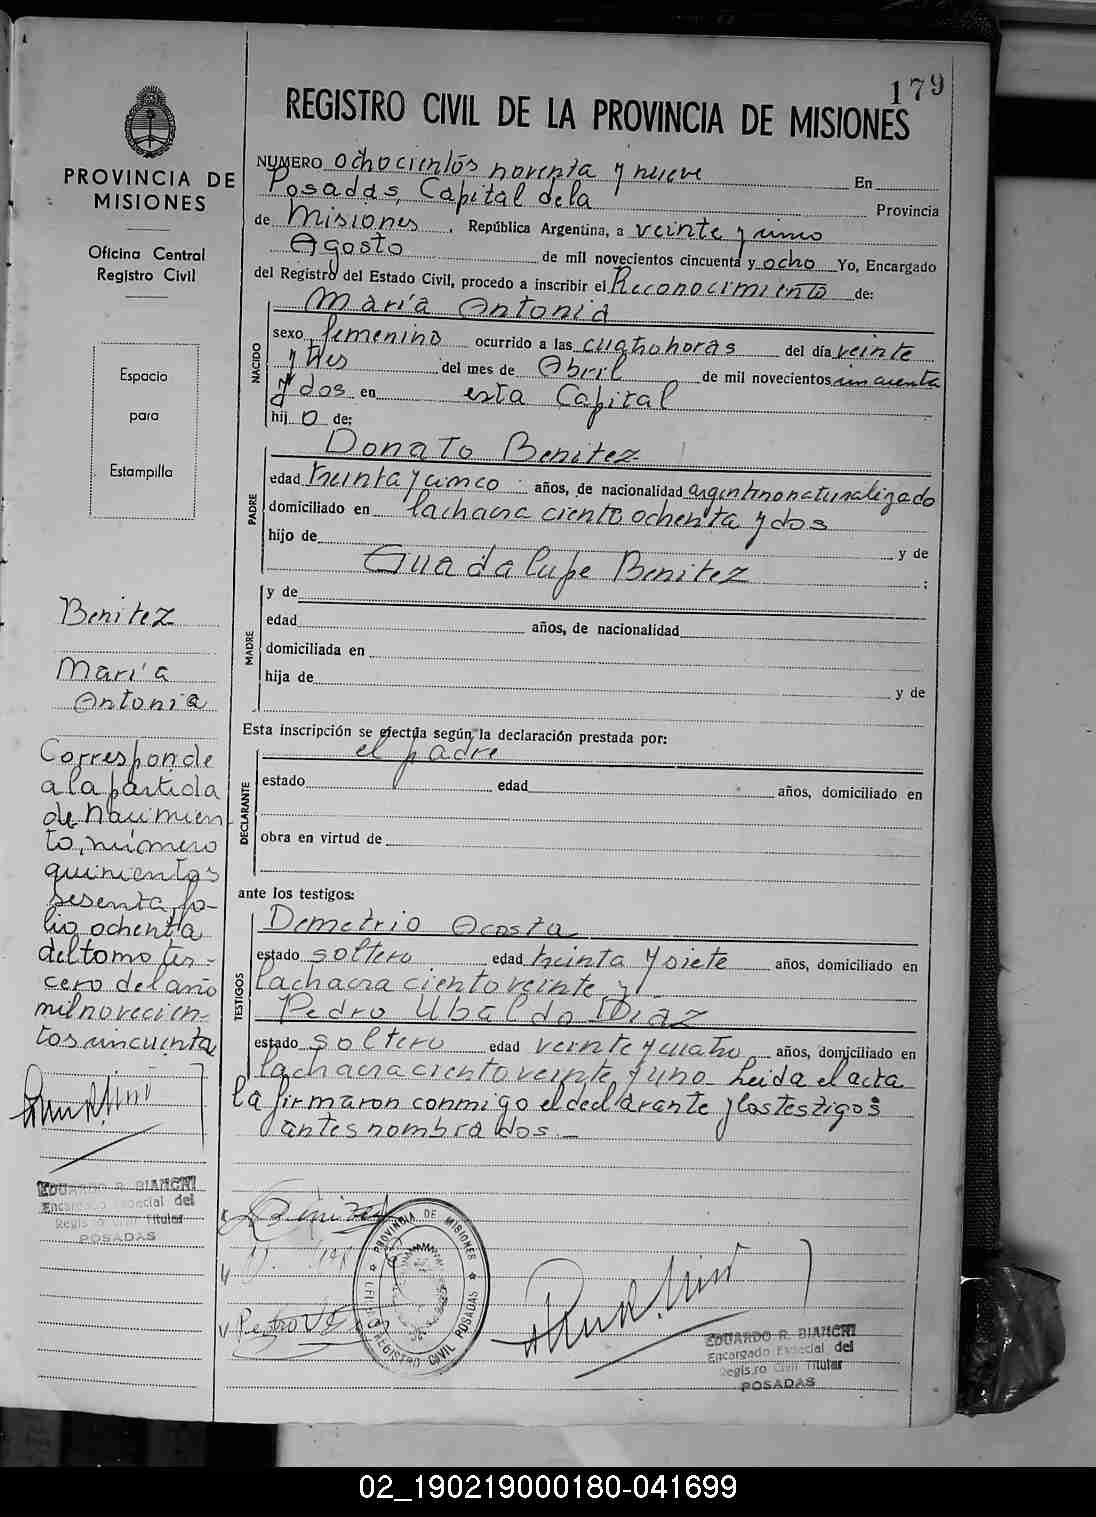 179
REGISTRO CIVIL DE LA PROVINCIA DE MISIONES
PROVINCIA DE
MISIONES
Oficina Central
Registro Civil
Espacio
para
Estampilla
NUMERO ochocientos noventa y nueve En
Posadas, Capital de la Provincia
de Misiones, República Argentina, a veinte y uno
Agosto de mil novecientos cincuenta y ocho Yo, Encargado
del Registro del Estado Civil, procedo a inscribir el Reconocimiento de:
María Antonia
NACIDO
sexo femenino ocurrido a las cuatro horas del día veinte
y tres del mes de Abril de mil novecientos cincuenta
y dos en esta Capital
hij o de:
Donato Benitez
PADRE
edad treinta y cinco años, de nacionalidad argentino naturalizado
domiciliado en la chacra ciento ochenta y dos
hijo de y de
Guadalupe Benitez ;
MADRE
y de
edad años, de nacionalidad
domiciliada en
hija de y de
Esta inscripción se efectúa según la declaración prestada por:
el padre
DECLARANTE
estado edad años, domiciliado en
obra en virtud de
ante los testigos:
Demetrio Acosta
TESTIGOS
estado soltero edad treinta y siete años, domiciliado en
la chacra ciento veinte y
Pedro Ubaldo Diaz
estado soltero edad veinte y cuatro años, domiciliado en
la chacra ciento veinte y uno. Leida el acta
la firmaron conmigo el declarante y los testigos
antes nombrados.
Benitez
María
Antonia
Corresponde
a la partida
de Nacimien
to, número
quinientos
sesenta, fo-
lio ochenta
del tomo ter-
cero del año
mil novecien-
tos cincuenta
EDUARDO R. BIANCHI
Encargado Especial del
Registro Civil Titular
POSADAS
PROVINCIA DE MISIONES
REGISTRO CIVIL POSADAS
EDUARDO R. BIANCHI
Encargado Especial del
Registro Civil Titular
POSADAS
02_190219000180-041699